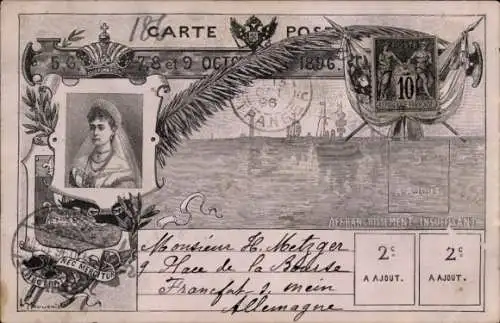 186
CARTE POSTALE
5.6.7.8 et 9 OCTOBRE 1896
96
10
A AJOUT.
AFFRANCHISSEMENT INSUFFISANT
FLUCTUAT NEC MERGITUR
Monsieur H. Metzger
9 Place de la Bourse
Francfort s. mein
Allemagne
2c
A AJOUT.
2c
A AJOUT.